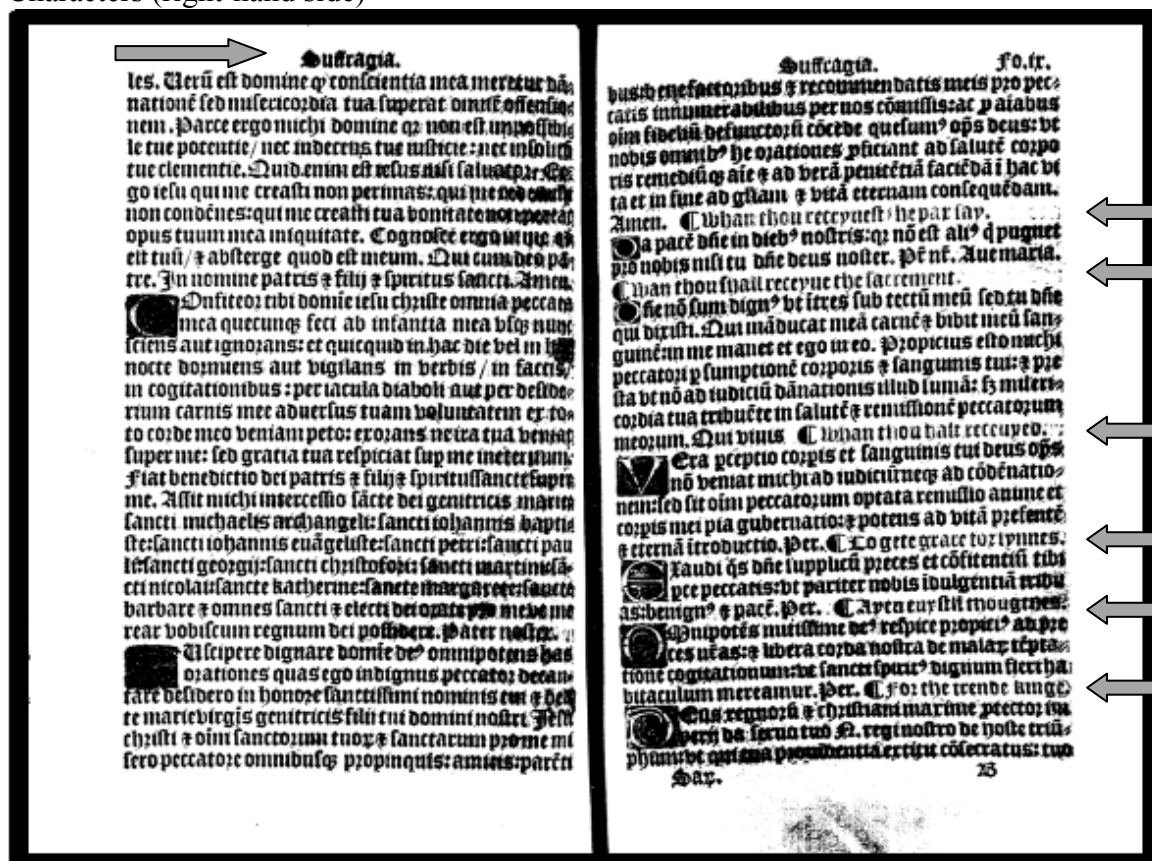 Characters (right hand side)
Suffragia.
les. Uerũ est domine ꝙ conscientia mea meretur dã⸗
nationẽ sed misericordia tua superat omnẽ offensio⸗
nem. Parce ergo michi domine qꝛ non est impossibi⸗
le tue potentie/ nec indecens tue iusticie: nec insolitũ
tue clementie. Quid enim est iesus nisi saluatoꝛ: Er⸗
go iesu qui me creasti non perimas: qui me
non condẽnes: qui me creasti tua bonitate non pereat
opus tuum mea iniquitate. Cognosce ergo in me
est tuũ/ ⁊ absterge quod est meum. Qui cum deo pa⸗
tre. In nomine patris ⁊ filij ⁊ spiritus sancti. Amen.
COnfiteoꝛ tibi domine iesu christe omnia peccata
mea quecunqꝫ feci ab infantia mea vsqꝫ nunc
sciens aut ignorans: et quicquid in hac die vel in
nocte doꝛmiens aut vigilans in verbis / in factis/
in cogitationibus : per iacula diaboli aut per deside⸗
rium carnis mee aduersus tuam voluntatem ex to⸗
to coꝛde meo veniam peto: exoꝛans ne ira tua veniat
super me: sed gratia tua respiciat sup me ineternum.
Fiat benedictio dei patris ⁊ filij ⁊ spiritussancti supꝛa
me. Assit michi intercessio sãcte dei genitricis marie
sancti michaelis archangeli: sancti iohannis baptis
ste: sancti iohannis euãgeliste: sancti petri: sancti pau
li: sancti georgij: sancti christofori: sancti martini: sã⸗
cti nicolai: sancte katherine: sancte margarete: sancte
barbare ⁊ omnes sancti ⁊ electi dei oꝛate pꝛo me vt me
rear vobiscum regnum dei possidere. Pater noster.
SUscipere dignare domie deꝰ omnipotens has
oꝛationes quas ego indignus peccatoꝛ decan⸗
tare desidero in honoꝛe sanctissimi nominis tui ⁊ bea
te marie virgis genitricis filii tui domini nostri Jesu
christi ⁊ oim sanctoꝛum tuoꝝ ⁊ sanctarum pꝛo me mi
sero peccatoꝛe omnibusqꝫ pꝛopinquis: amicis: parẽti
Suffragia. Fo.ix.
bus: benefactoꝛibus ⁊ recommendatis meis pꝛo pec⸗
catis innumerabilibus per nos cõmissis: ac p aĩabus
oim fidelium defunctoꝛũ cõcede quesumꝰ opš deus: vt
nobis omnibꝰ he oꝛationes pficiant ad salutẽ coꝛpo
ris remediũqꝫ aĩe ⁊ ad verã penitẽtiã faciẽdã ĩ hac vi
ta et in fine ad gl̃iam ⁊ vitã eternam consequẽdam.
Amen. ¶ Whan thou receyuest the pax say.
DA pacẽ dñe in diebꝰ nostris: qꝛ nõ est aliꝰ q̇ pugnet
pꝛo nobis nisi tu dñe deus noster. Pr̃ nr̃. Aue maria.
¶ Whan thou shall receyue the sacrement.
DÑe nõ sum dignꝰ vt ĩtres sub tectũ meũ sed tu dñe
qui dixisti. Qui mãducat meã carnẽ ⁊ bibit meũ san⸗
guinẽ: in me manet et ego in eo. Pꝛopicius esto michi
peccatoꝛi p sumptionẽ coꝛpoꝛis ⁊ sanguinis tui: ⁊ pꝛe
sta vt nõ ad iudiciũ dãnationis illud sumã: sꝫ miseri⸗
coꝛdia tua tribuẽte in salutẽ ⁊ remissionẽ peccatoꝛum
meoꝛum. Qui viuis. ¶ Whan thou hast receyued.
VEra pceptio coꝛpis et sanguinis tui deus opš
nõ veniat michi ad iudiciũ: neqꝫ ad cõdẽnatio⸗
nem: sed sit oim peccatoꝛum optata remissio anime et
coꝛpis mei pia gubernatio: ⁊ potens ad vitã pꝛesentẽ
⁊ eternã ĩtroductio. Per. ¶ To gete grace foꝛ synnes.
EXaudi q̃s dñe supplicũ pꝛeces et cõfitentiũ tibi
pce peccatis: vt pariter nobis ĩdulgentiã tribu
as: benignꝰ ⁊ pacẽ. Per. ¶ Ayen euyll thoughtes.
OMnipotẽs mitissime deꝰ respice pꝛopiciꝰ ad pꝛe
ces nr̃as: ⁊ libera coꝛda nostra de malaꝝ tẽpta⸗
tione cogitationum: vt sancti spiritꝰ dignum fieri ha
bitaculum mereamur. Per. ¶ Foꝛ the kinge
DEus regnoꝛũ ⁊ christiani maxime ptectoꝛ im
perij da seruo tuo N. regi nostro de hoste triũ⸗
phum: vt qui tua pꝛouidentia extitit cõsecratus: tuo
Sar.